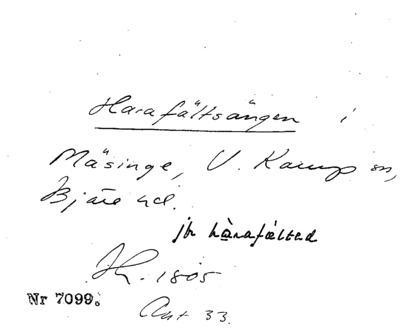 Harafältsängen i
Mäsinge, V. Karup sn,
Bjäre hd.
jfr hàrafæ̀lted
Sk. 1805
Nr 7099.
Akt 33.